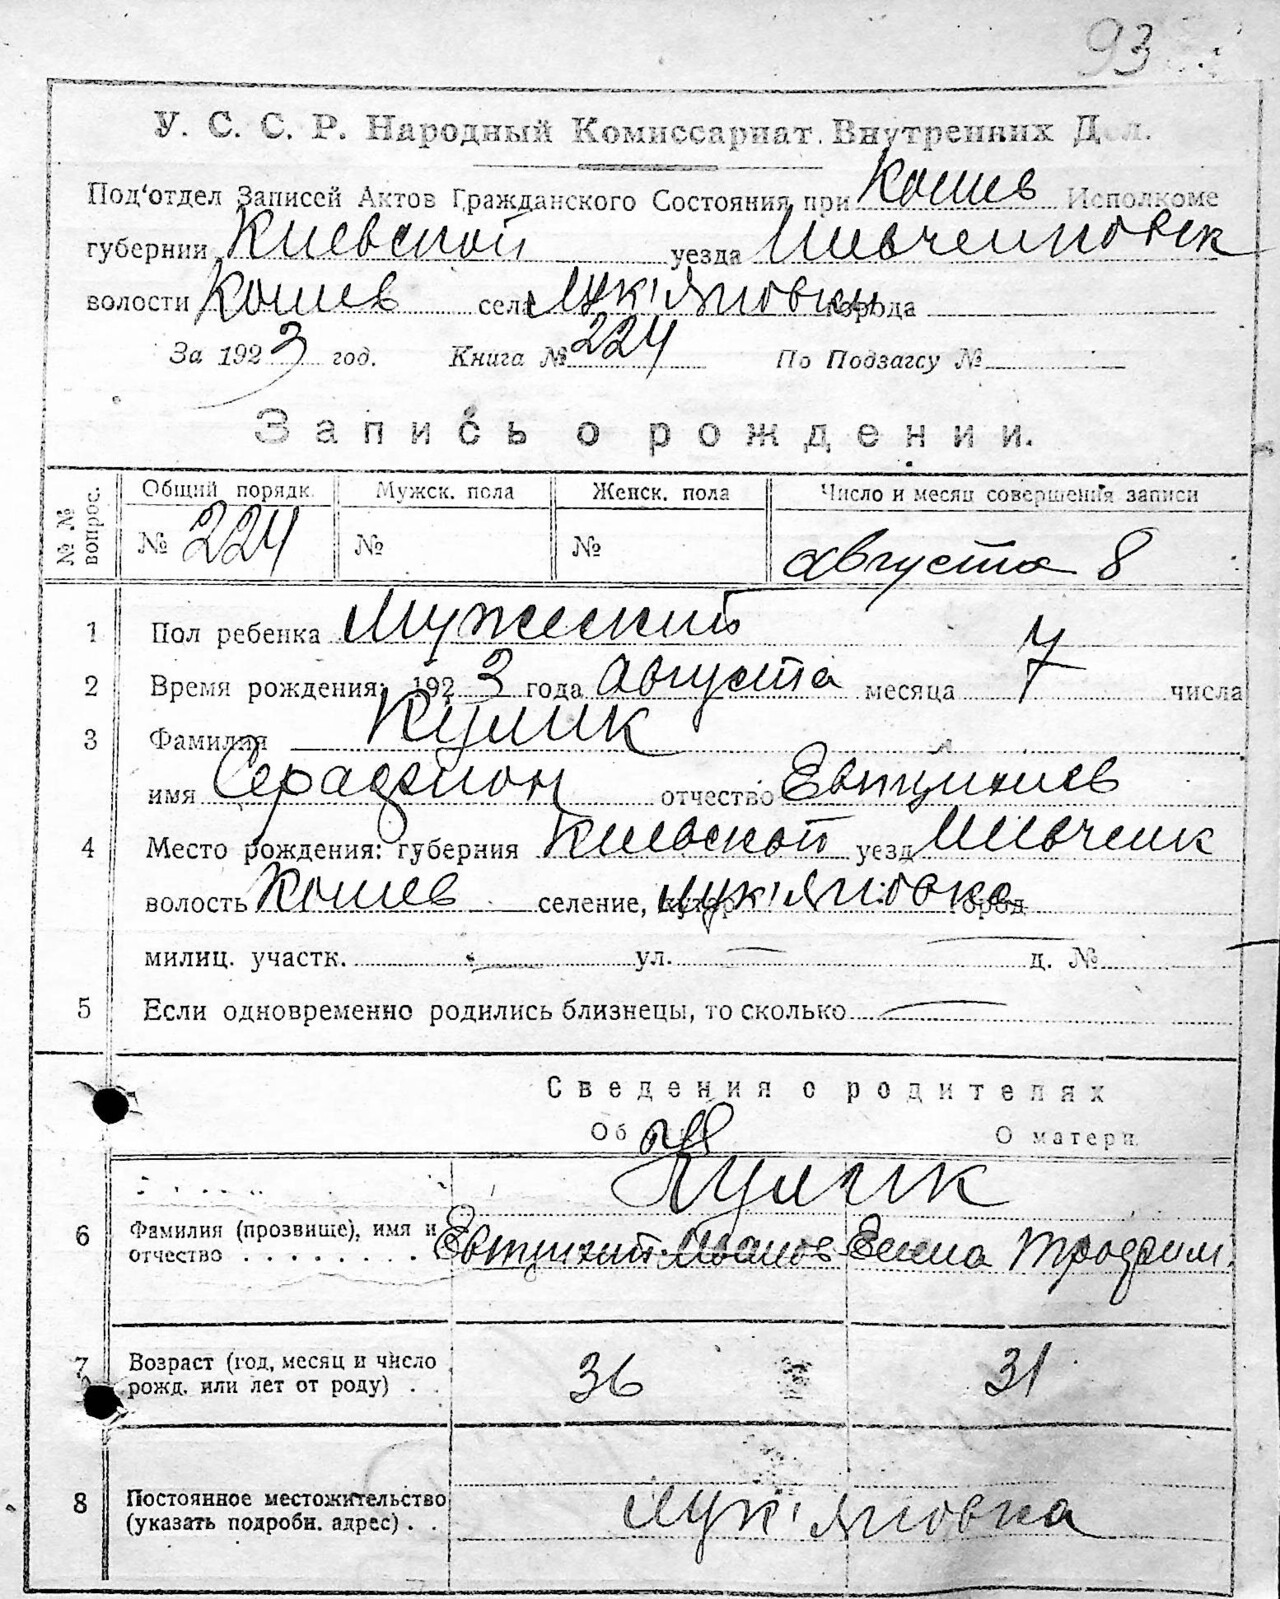 93
У. С. С. Р. Народный Комиссариат Внутренних Дел.
Под'отдел Записей Актов Гражданского Состояния при Кошев Исполкоме
губернии Киевской уезда Шевченковск
волости Кошев села Лук'яновки города
За 1923 год. Книга № 224 По Подзагсу №
Запись о рождении.
№ № вопрос. Общий порядк. Мужск. пола Женск. пола Число и месяц совершения записи
№ 224 № № августа 8
1 Пол ребенка Мужеский
2 Время рождения: 1923 года августа месяца 7 числа
3 Фамилия Кулик
имя Серафион отчество Евтихиев
4 Место рождения: губерния Киевской уезд Шевченк
волость Кошев селение, хутор Лук'яновка город
милиц. участк. ул. д. №
5 Если одновременно родились близнецы, то сколько
Сведения о родителях
Об отце О матери
Кулик
6 Фамилия (прозвище), имя и Евтихий Иванов Елена Трофим.
отчество . . . . . . . .
7 Возраст (год, месяц и число 36 31
рожд. или лет от роду) . .
8 Постоянное местожительство Лук'яновка
(указать подробн. адрес) . .